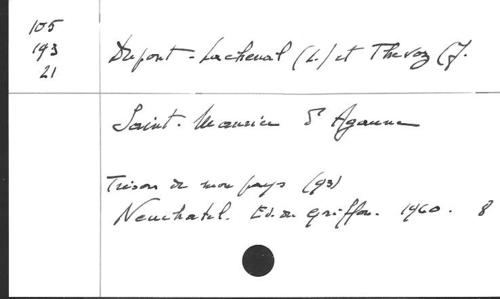 105
193
21
Dupont-Lachenal (L.) et Thevoz (J.
Saint-Maurice d'Agaune
Trésors de mon pays (93)
Neuchatel. Ed. du Griffon. 1960. 8